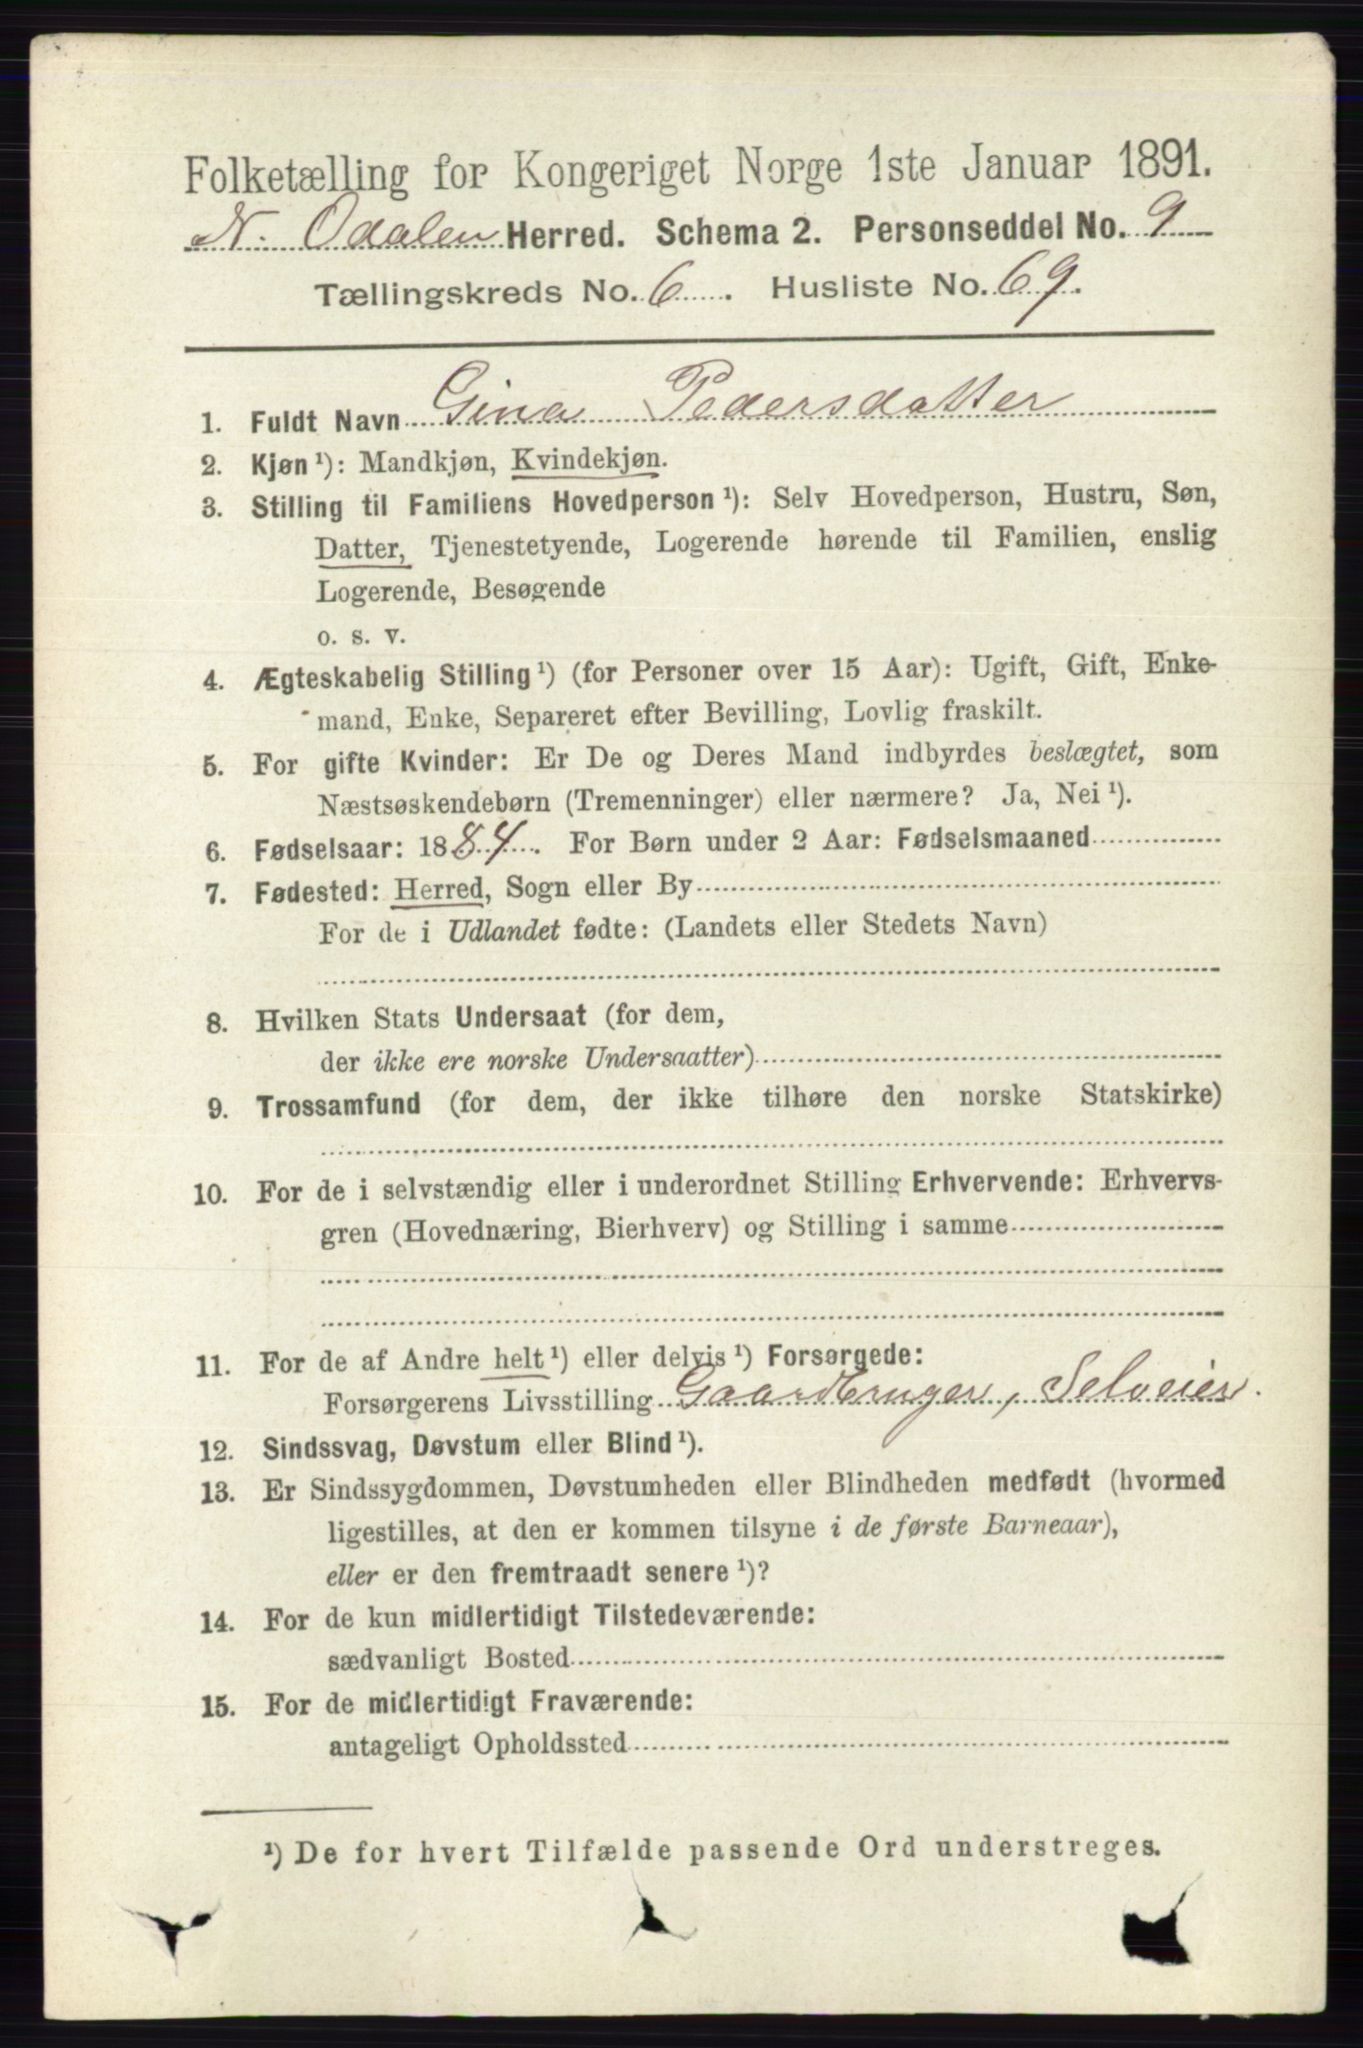 Folketælling for Kongeriget Norge 1ste Januar 1891.
N. Odalen Herred. Schema 2. Personseddel No. 9
Tællingskreds No. 6. Husliste No. 69.
1. Fuldt Navn Gina Pedersdatter
2. Kjøn ¹): Mandkjøn, Kvindekjøn.
3. Stilling til Familiens Hovedperson ¹): Selv Hovedperson, Hustru, Søn,
Datter, Tjenestetyende, Logerende hørende til Familien, enslig
Logerende, Besøgende
o. s. v.
4. Ægteskabelig Stilling ¹) (for Personer over 15 Aar): Ugift, Gift, Enke-
mand, Enke, Separeret efter Bevilling, Lovlig fraskilt.
5. For gifte Kvinder: Er De og Deres Mand indbyrdes beslægtet, som
Næstsøskendebørn (Tremenninger) eller nærmere? Ja, Nei ¹).
6. Fødselsaar: 1884. For Børn under 2 Aar: Fødselsmaaned
7. Fødested: Herred, Sogn eller By
For de i Udlandet fødte: (Landets eller Stedets Navn)
8. Hvilken Stats Undersaat (for dem,
der ikke ere norske Undersaatter)
9. Trossamfund (for dem, der ikke tilhøre den norske Statskirke)
10. For de i selvstændig eller i underordnet Stilling Erhvervende: Erhvervs-
gren (Hovednæring, Bierhverv) og Stilling i samme
11. For de af Andre helt ¹) eller delvis ¹) Forsørgede:
Forsørgerens Livsstilling Gaardbruger, Selveier.
12. Sindssvag, Døvstum eller Blind ¹).
13. Er Sindssygdommen, Døvstumheden eller Blindheden medfødt (hvormed
ligestilles, at den er kommen tilsyne i de første Barneaar),
eller er den fremtraadt senere ¹)?
14. For de kun midlertidigt Tilstedeværende:
sædvanligt Bosted
15. For de midlertidigt Fraværende:
antageligt Opholdssted
¹) De for hvert Tilfælde passende Ord understreges.